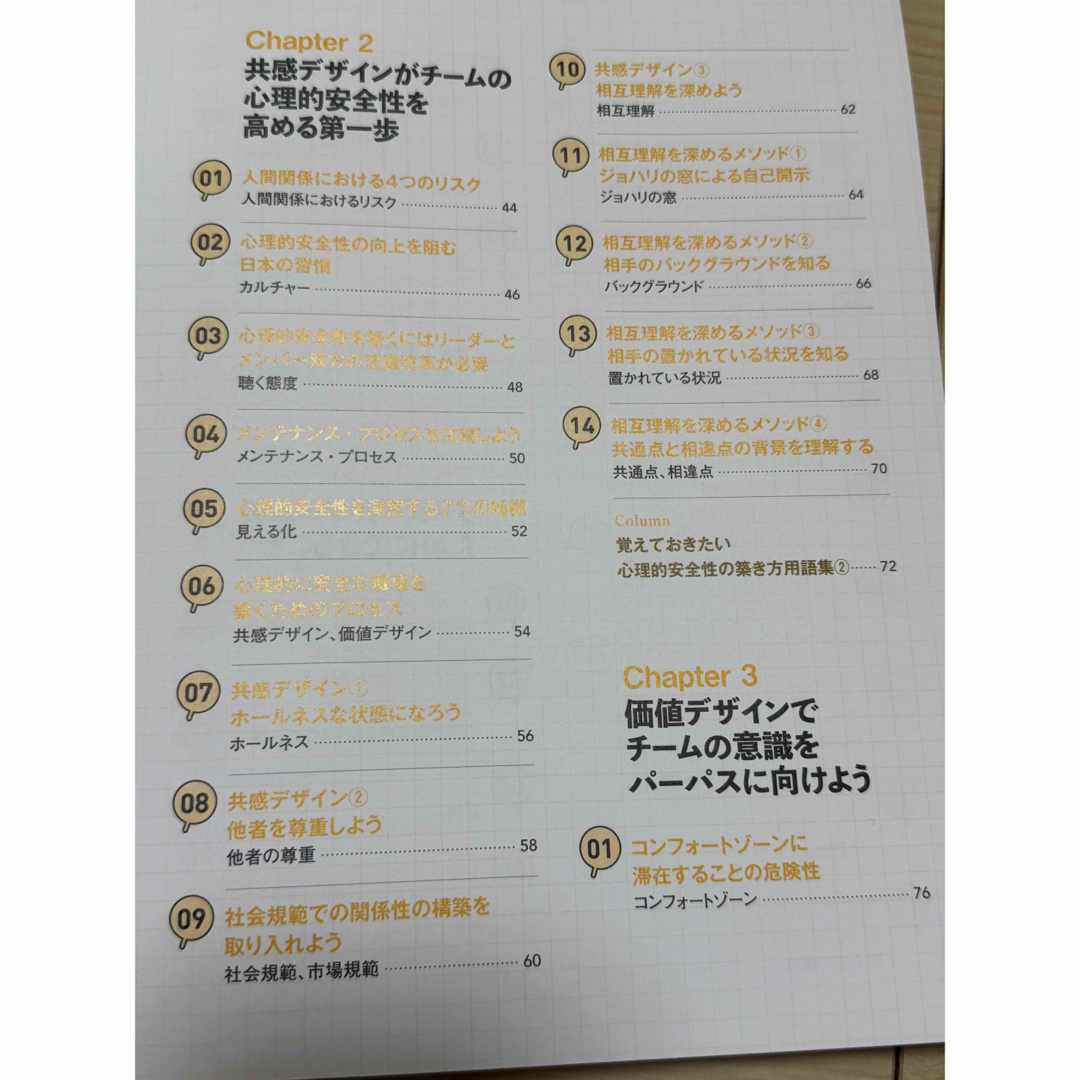 Chapter 2
共感デザインがチームの
心理的安全性を
高める第一歩
01 人間関係における4つのリスク
人間関係におけるリスク 44
02 心理的安全性の向上を阻む
日本の習慣
カルチャー 46
03 心理的安全性を築くにはリーダーと
メンバー双方の意識改革が必要
聴く態度 48
04 メンテナンス・プロセスを注視しよう
メンテナンス・プロセス 50
05 心理的安全性を測定する7つの指標
見える化 52
06 心理的に安全な職場を
築くためのプロセス
共感デザイン、価値デザイン 54
07 共感デザイン①
ホールネスな状態になろう
ホールネス 56
08 共感デザイン②
他者を尊重しよう
他者の尊重 58
09 社会規範での関係性の構築を
取り入れよう
社会規範、市場規範 60
10 共感デザイン③
相互理解を深めよう
相互理解 62
11 相互理解を深めるメソッド①
ジョハリの窓による自己開示
ジョハリの窓 64
12 相互理解を深めるメソッド②
相手のバックグラウンドを知る
バックグラウンド 66
13 相互理解を深めるメソッド③
相手の置かれている状況を知る
置かれている状況 68
14 相互理解を深めるメソッド④
共通点と相違点の背景を理解する
共通点、相違点 70
Column
覚えておきたい
心理的安全性の築き方用語集② 72
Chapter 3
価値デザインで
チームの意識を
パーパスに向けよう
01 コンフォートゾーンに
滞在することの危険性
コンフォートゾーン 76